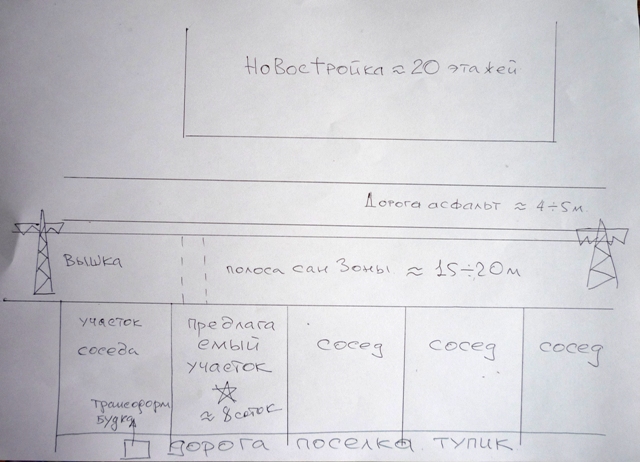 Новостройка ≈ 20 этажей
Дорога асфальт ≈ 4÷5м
Вышка
полоса сан зоны ≈ 15÷20м
участок
соседа
предлага
емый
участок
≈ 8 соток
сосед
сосед
сосед
трансформ
будка
дорога поселка тупик